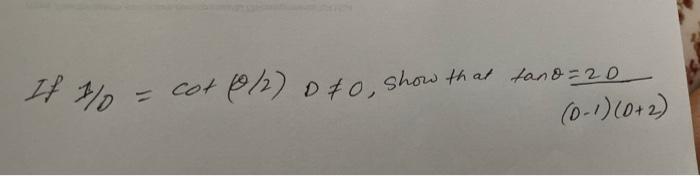 If 1/D = cot (θ/2) D ≠ 0, show that tanθ = 2D
(D-1)(D+2)